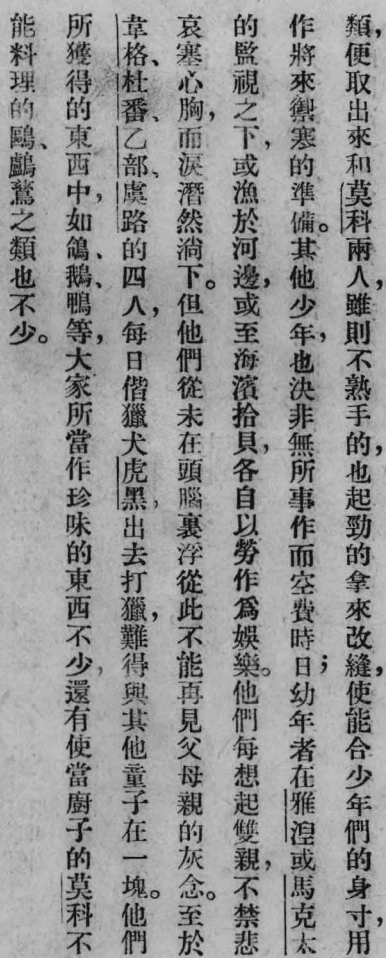 類，便取出來和莫科兩人，雖則不熟手的，也起勁的拿來改縫，使能合少年們的身寸，用
作將來禦寒的準備。其他少年，也決非無所事作而空費時日；幼年者在雅涅或馬克太
的監視之下，或漁於河邊，或至海濱拾貝，各自以勞作爲娛樂。他們每想起雙親，不禁悲
哀塞心胸，而淚潛然淌下。但他們從未在頭腦裏浮從此不能再見父母親的灰念。至於
韋格、杜番、乙部、虞路的四人，每日偕獵犬虎黑，出去打獵，難得與其他童子在一塊。他們
所獲得的東西中，如鴿、鵝、鴨等，大家所當作珍味的東西不少，還有使當廚子的莫科不
能料理的鷗、鸕鶿之類也不少。